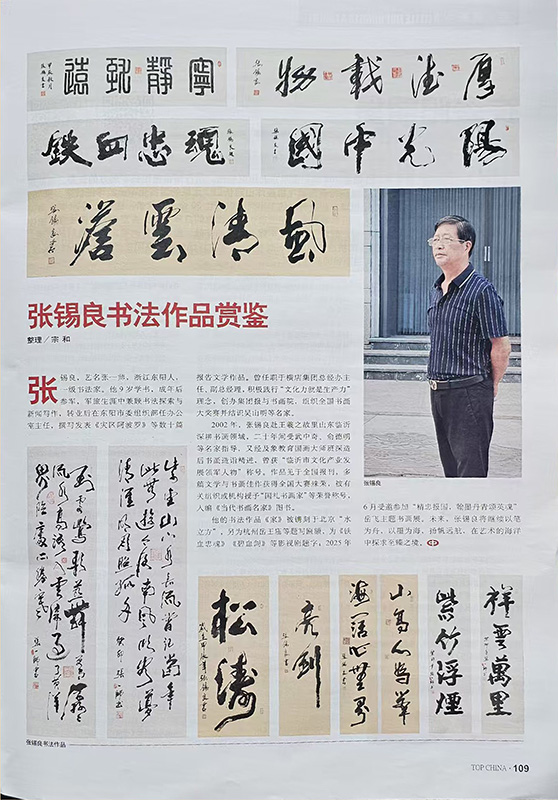 寧靜致遠
厚德載物
鐵血忠魂
陽光中國
清雲
张锡良书法作品赏鉴
整理／宗 和
张锡良，艺名张一弛，浙江东阳人，
一级书法家。他9岁学书，成年后
参军，军旅生涯中兼顾书法探索与
新闻写作，转业后在东阳市委组织部任办公
室主任，撰写发表《灾区阿波罗》等数十篇
报告文学作品。曾任职于横店集团总经办主
任、副总经理，积极践行“文化力就是生产力”
理念，创办集团报与书画院，组织全国书画
大奖赛并结识吴山明等名家。
2002年，张锡良赴王羲之故里山东临沂
深耕书画领域，二十年间受武中奇、俞德明
等名家指导，又经及象教育国画大师班深造
后书画造诣精进，曾获“临沂市文化产业发
展领军人物”称号。作品见于全国报刊，多
篇文学与书画佳作获得全国大赛殊荣，被有
关组织或机构授予“国礼书画家”等荣誉称号，
入编《当代书画名家》图书。
他的书法作品《家》被镌刻于北京“水
立方”，另为杭州岳王庙等题写匾额，为《铁
血忠魂》《碧血剑》等影视剧题字，2025年
张锡良
6月受邀参加“精忠报国，翰墨丹青颂英魂”
岳飞主题书画展。未来，张锡良将继续以笔
为舟，以墨为海，扬帆远航，在艺术的海洋
中探求至臻之境。
松涛
亮剑
海闊心無界
山高人為峰
紫竹浮煙
祥雲萬里
张锡良书法作品
TOP CHINA · 109